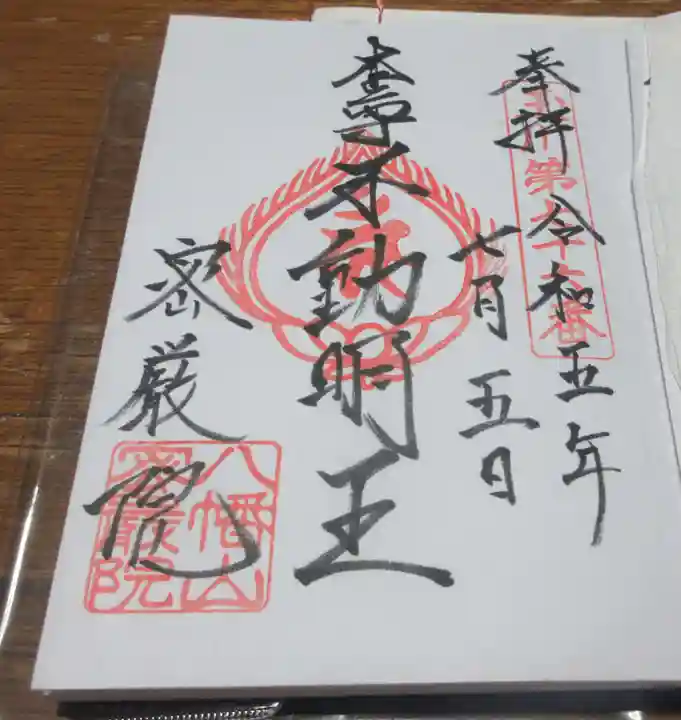 奉拝 令和五年
七月五日
本尊不動明王
密厳院
八幡山
密嚴院